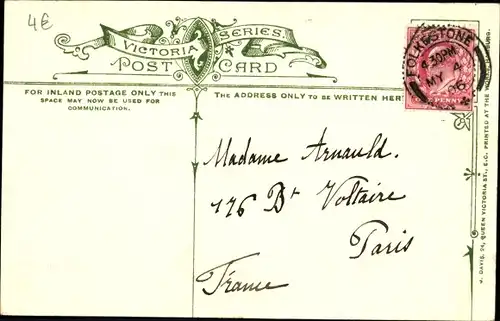 4€
VICTORIA SERIES
POST CARD
FOR INLAND POSTAGE ONLY THIS
SPACE MAY NOW BE USED FOR
COMMUNICATION.
THE ADDRESS ONLY TO BE WRITTEN HERE
FOLKESTONE
30PM
MY 4
06
ONE PENNY
Madame Arnauld.
126 Bd Voltaire
Paris
France
J. DAVIS, 24, QUEEN VICTORIA ST., E.C. PRINTED AT THE WORKS